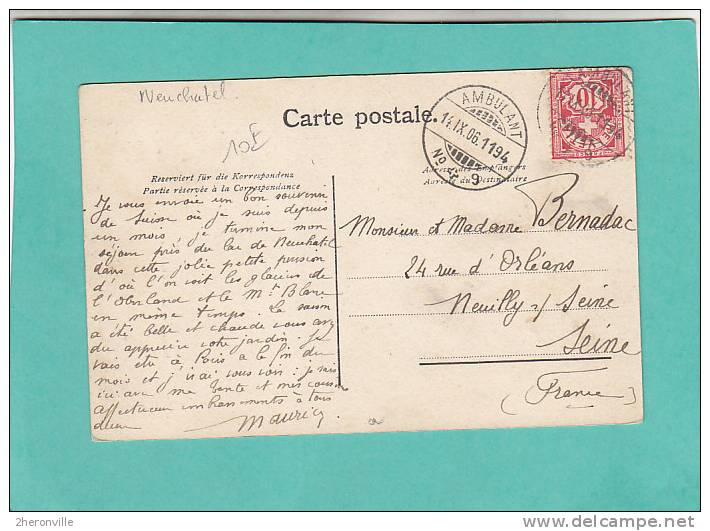 Neuchatel
10F
Carte postale.
AMBULANT
14.IX.06.1194
No 9
10
Reserviert für die Korrespondenz
Partie réservée à la Correspondance
Adresse des Empfängers
Adresse du Destinataire
Je vous envoie un bon souvenir
de Suisse où je suis depuis
un mois, je termine mon
séjour près du lac de Neuchatel
dans cette jolie petite pension
d'où l'on voit les glaciers de
l'Oberland et le Mt Blanc
en même temps. La saison
a été belle et chaude vous avez
du apprécier votre jardin. Je
vais être à Paris à la fin du
mois et j'irai vous voir : je suis
ici avec ma tante et mes
affectueux à tous
deux
Monsieur et Madame Bernadac
24 rue d'Orléans
Neuilly s/ Seine
Seine
(France)
2heronville
delcampe.net